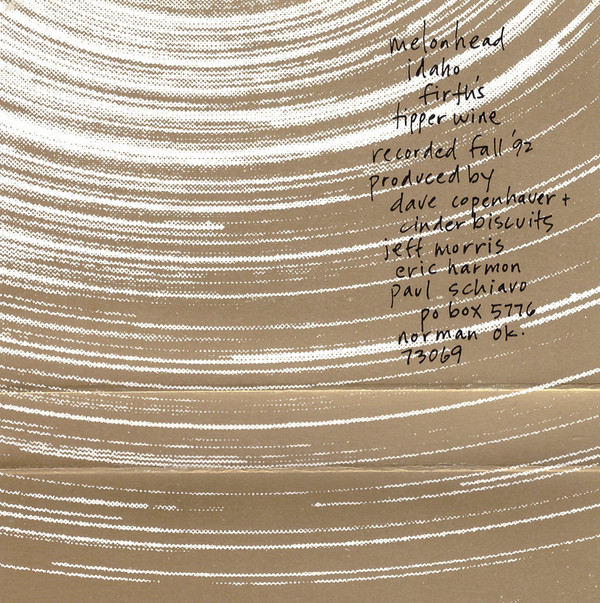 melonhead
idaho
firth's
tipper wine
recorded fall '92
produced by
dave copenhaver +
cinder biscuits
jeff morris
eric harmon
paul schiavo
po box 5776
norman ok.
73069